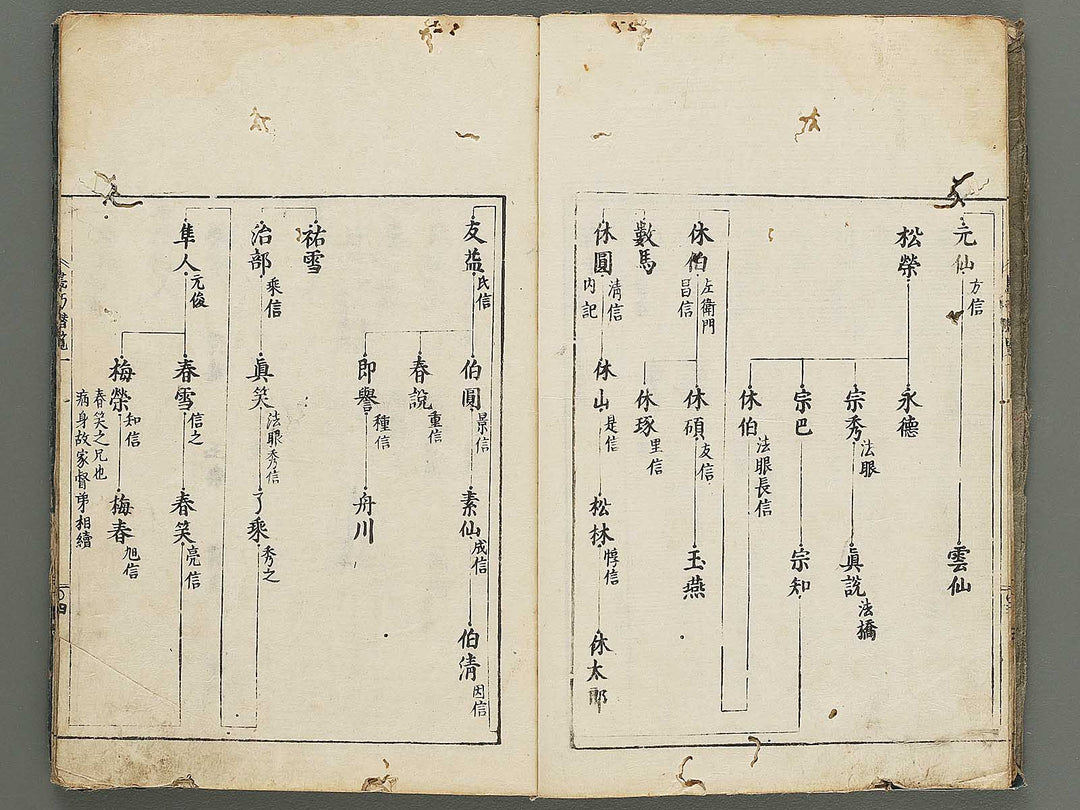 元仙
方信
雲仙
松榮
永徳
宗秀
法眼
眞説
法橋
宗巴
宗知
休伯
法眼長信
休伯
左衛門
昌信
休碩
友信
玉燕
休琢
里信
數馬
休圓
清信
内記
休山
是信
松林
惇信
休太郎
友益
氏信
伯圓
景信
素仙
成信
伯清
因信
春説
重信
即譽
種信
舟川
祐雪
治部
乘信
眞笑
法眼秀信
了乘
秀之
隼人
元俊
春雪
信之
春笑
亮信
梅榮
知信
春笑之兄也
病身故家督弟相續
梅春
旭信
四